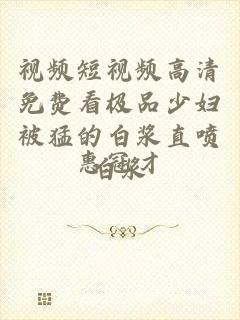 视频短视频高清
免费看极品少妇
被猛的白浆直喷
白浆